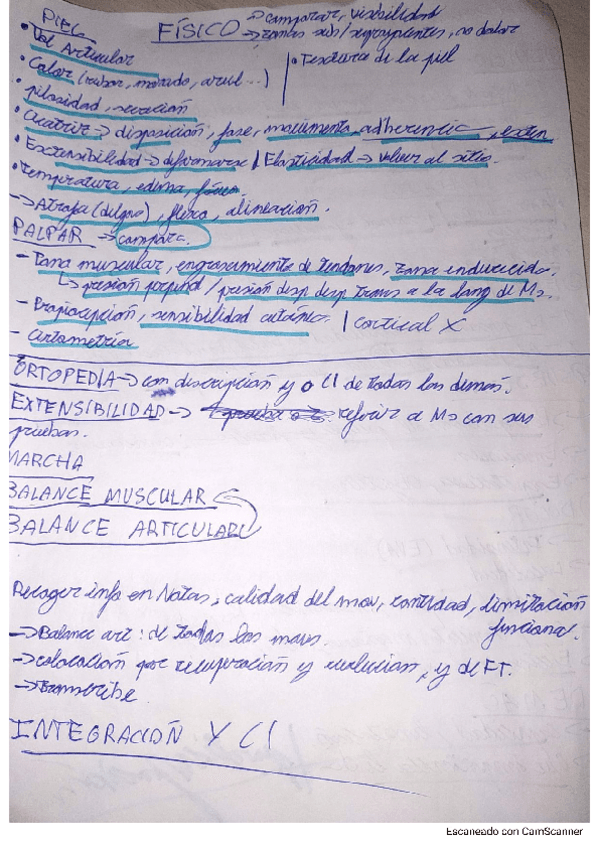 PIEL FÍSICO → comparar, visibilidad
→ zonas sub/ , no dolor
• Vol Articular
• Textura de la piel
• Color (rubor, morado, azul...)
• pilosidad, secreción
• Cicatriz → disposición, fase, movimiento, adherencia, exten
• Extensibilidad → deformarse / Elasticidad → volver al sitio.
• Temperatura, edema,
→ Atrofia (delgno), flexo, alineación.
PALPAR → compara.
- Tono muscular, engrosamiento de tendones, zona endurecida.
↳ presión perpend / presión desp, desp transv a la long de Ms.
- Propiocepción, sensibilidad cutánea. / cortical X
- Cirtometría
ORTOPEDIA → con discripción y o CI de todas las demás.
EXTENSIBILIDAD → referir a Ms con sus
pruebas.
MARCHA
BALANCE MUSCULAR
BALANCE ARTICULAR
Recoger info en Notas, calidad del mov, cantidad, limitación
funcional.
→ Balance art: de todos los movs.
→ colocación por recuperación y evolución, y de FT.
→ transcribe
INTEGRACIÓN Y CI
Escaneado con CamScanner